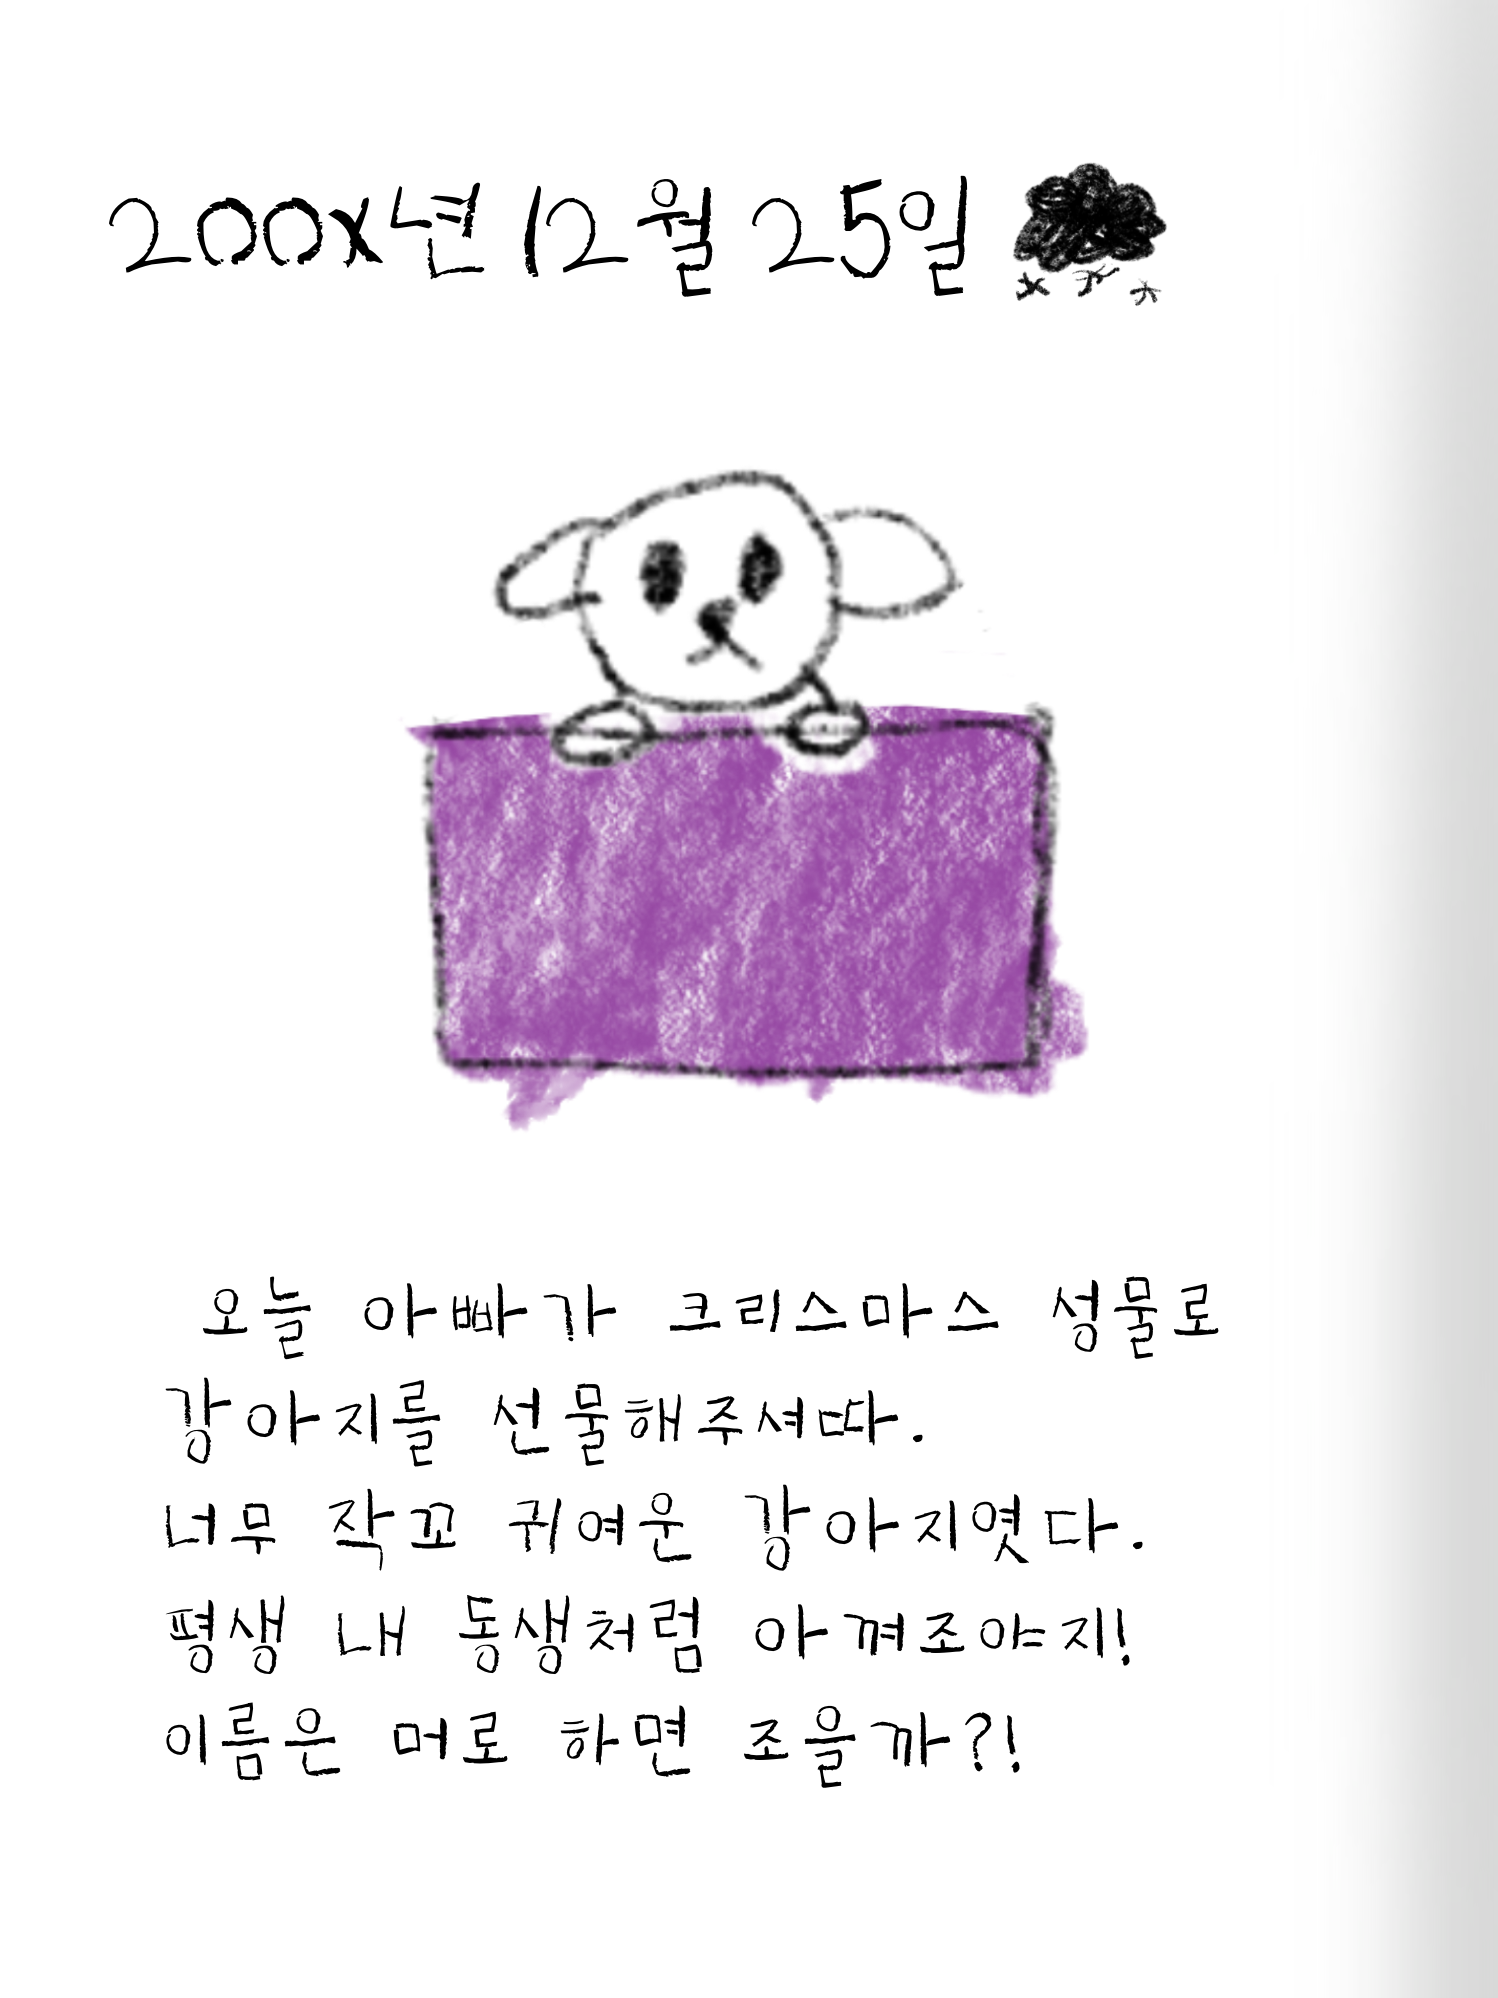 200x년 12월 25일
오늘 아빠가 크리스마스 성물로
강아지를 선물해주셔따.
너무 작꼬 귀여운 강아지엿다.
평생 내 동생처럼 아껴조야지!
이름은 머로 하면 조을까?!